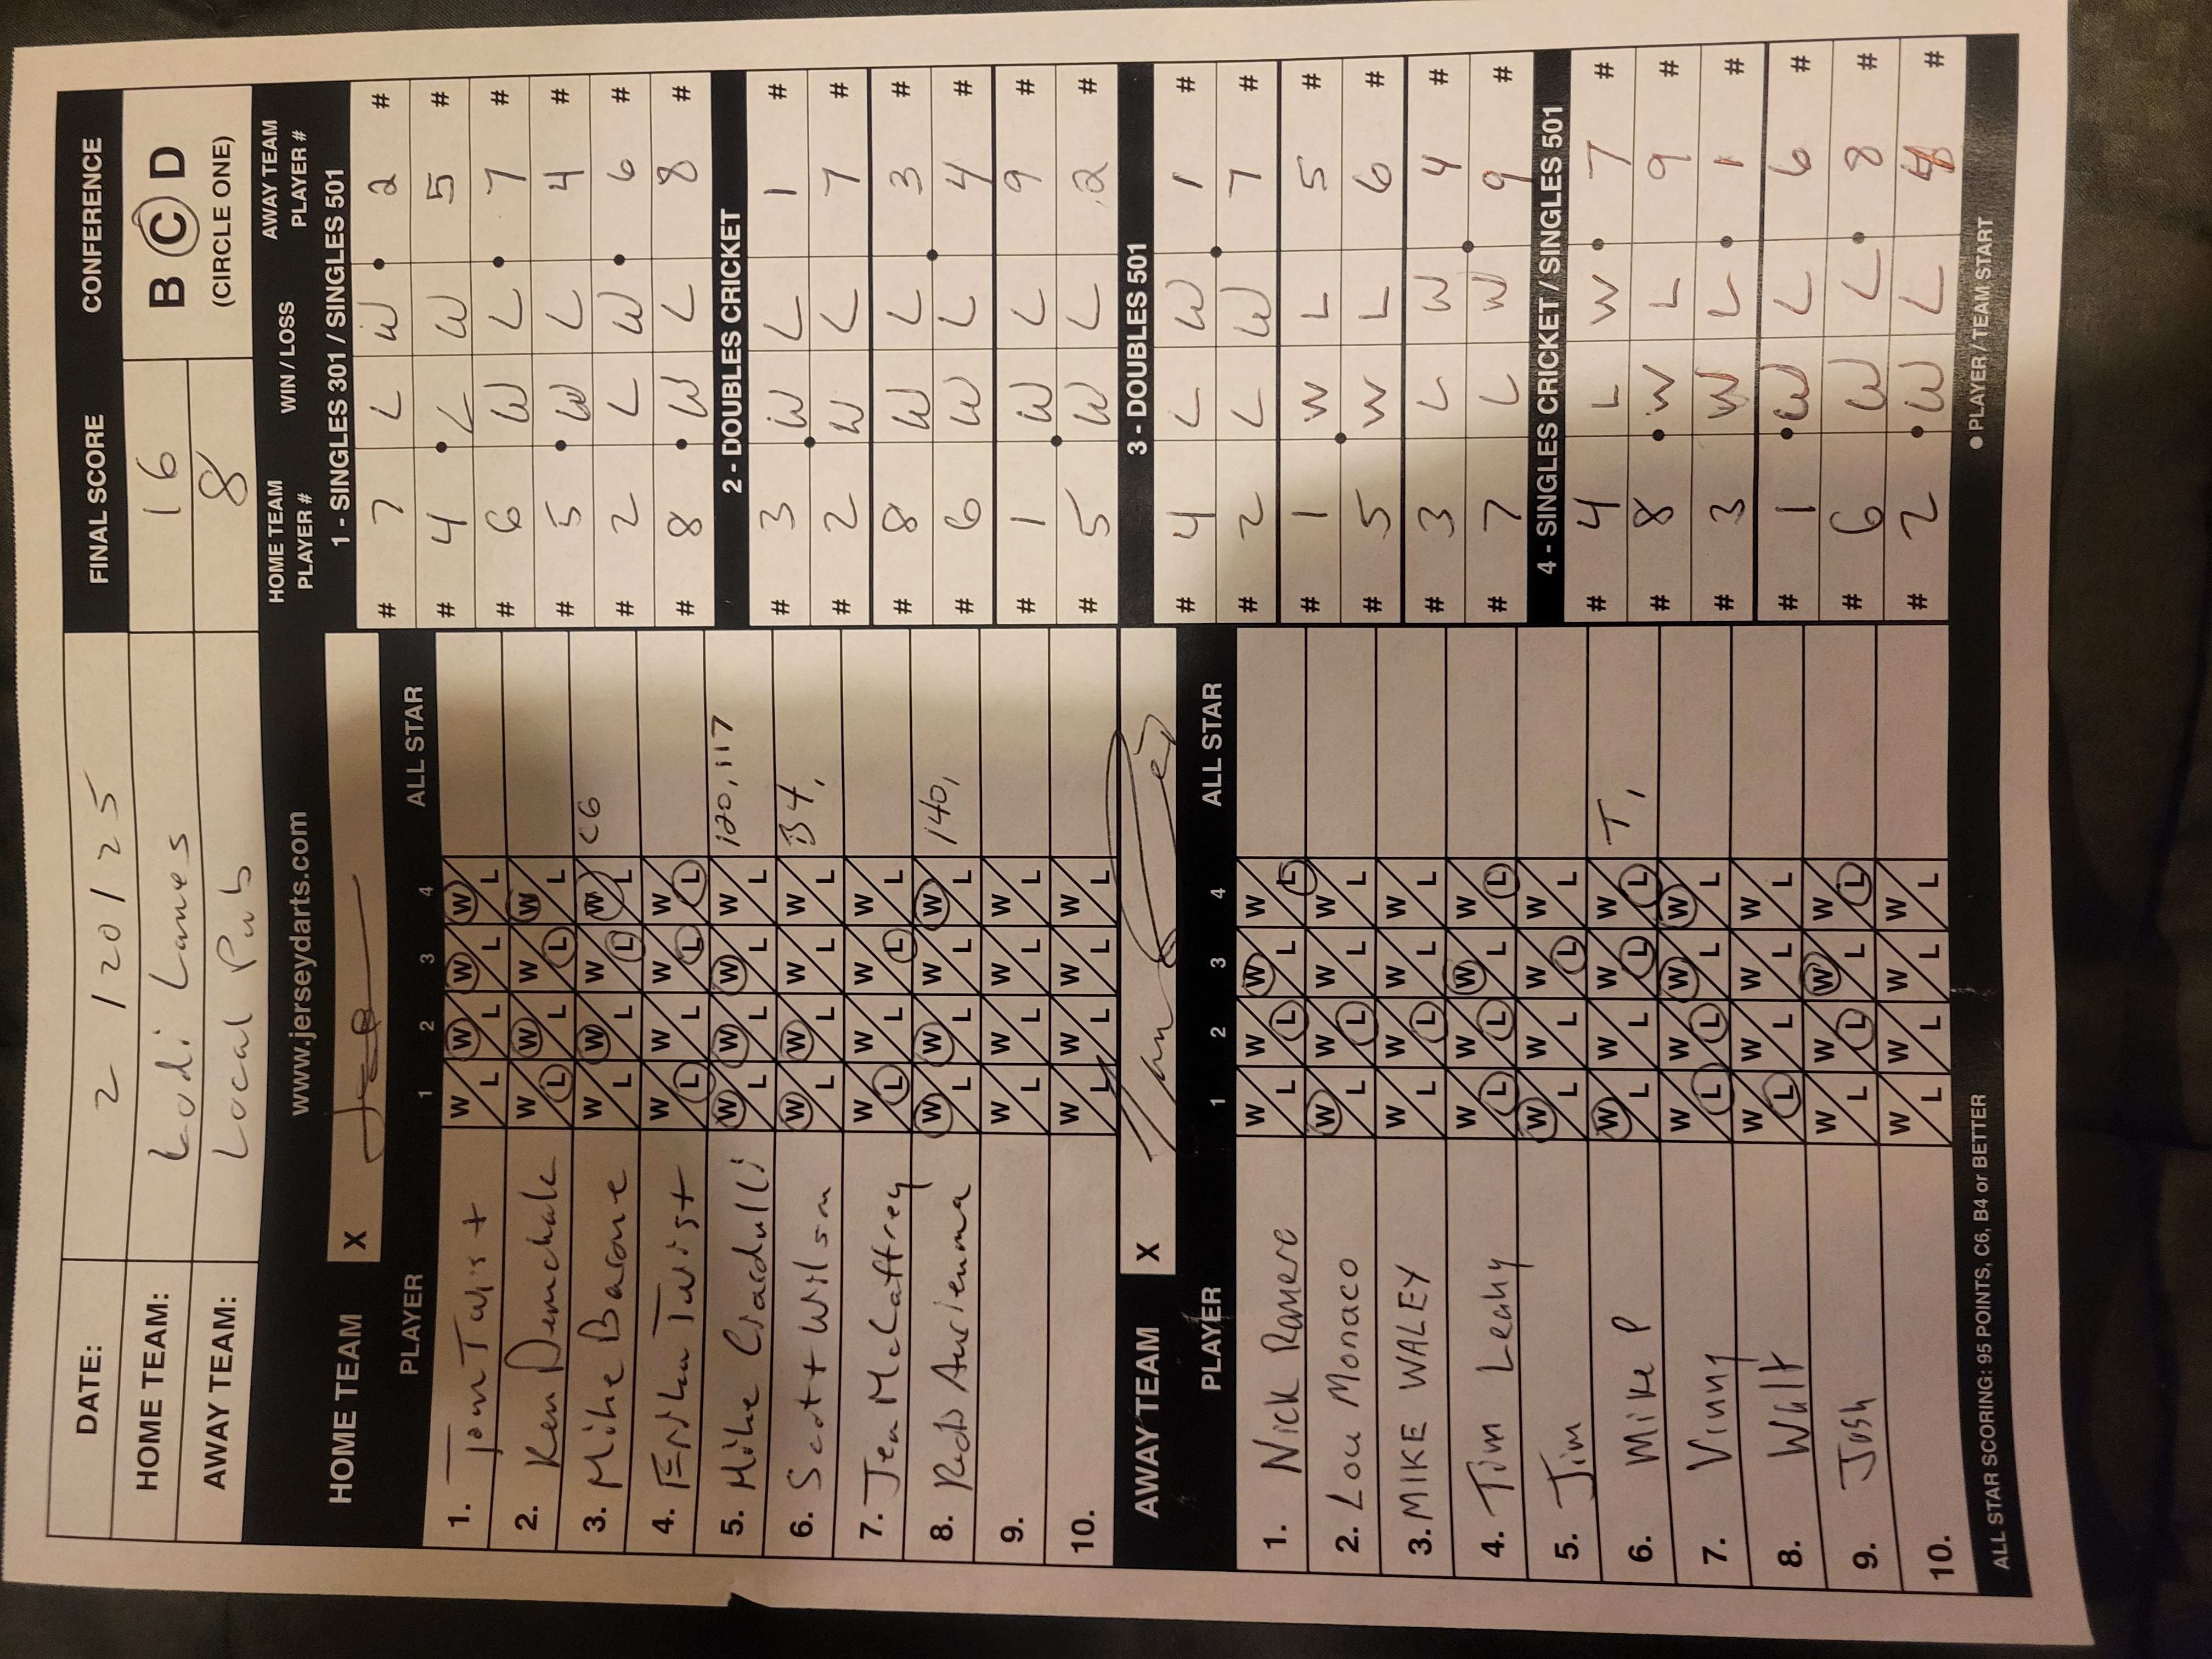 DATE: 2 / 20 / 25 FINAL SCORE CONFERENCE
HOME TEAM: Lodi Lanes 16 B C D
AWAY TEAM: Local Pub 8 (CIRCLE ONE)
www.jerseydarts.com
HOME TEAM X
PLAYER 1 2 3 4 ALL STAR
1. Tom Twist W L W L W L W L
2. Ken Demchak W L W L W L W L
3. Mike Barone W L W L W L W L C6
4. Erika Twist W L W L W L W L
5. Mike Ciardulli W L W L W L W L 120, 117
6. Scott Wilson W L W L W L W L B4,
7. Jen McCaffrey W L W L W L W L
8. Rob Auriemma W L W L W L W L 140,
9. W L W L W L W L
10. W L W L W L W L
AWAY TEAM X
PLAYER 1 2 3 4 ALL STAR
1. Nick Ramero W L W L W L W L
2. Lou Monaco W L W L W L W L
3. MIKE WALEY W L W L W L W L
4. Tim Leahy W L W L W L W L
5. Jim W L W L W L W L
6. Mike P W L W L W L W L T,
7. Vinny W L W L W L W L
8. Walt W L W L W L W L
9. Josh W L W L W L W L
10. W L W L W L W L
ALL STAR SCORING: 95 POINTS, C6, B4 or BETTER
HOME TEAM PLAYER # WIN / LOSS AWAY TEAM PLAYER #
1 - SINGLES 301 / SINGLES 501
# 7 L W 2 #
# 4 L W 5 #
# 6 W L 7 #
# 5 W L 4 #
# 2 L W 6 #
# 8 W L 8 #
2 - DOUBLES CRICKET
# 3 W L 1 #
# 2 W L 7 #
# 8 W L 3 #
# 6 W L 4 #
# 1 W L 9 #
# 5 W L 2 #
3 - DOUBLES 501
# 4 L W 1 #
# 2 L W 7 #
# 1 W L 5 #
# 5 W L 6 #
# 3 L W 4 #
# 7 L W 9 #
4 - SINGLES CRICKET / SINGLES 501
# 4 L W 7 #
# 8 W L 9 #
# 3 W L 1 #
# 1 W L 6 #
# 6 W L 8 #
# 2 W L 4 #
● PLAYER / TEAM START